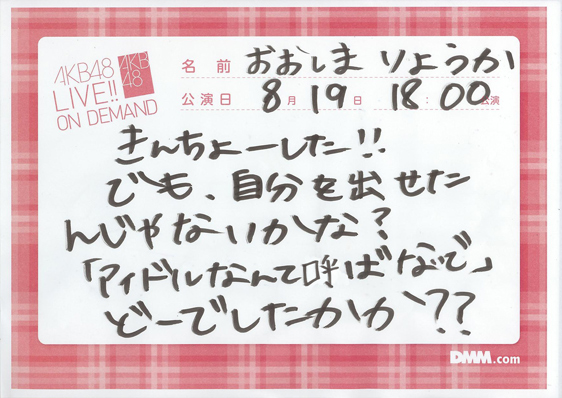 AKB48
LIVE!!
ON DEMAND
AKB
48
名前 おおしま りょうか
公演日 8月19日 18:00公演
きんちょーした!!
でも、自分を出せた
んじゃないかな?
「アイドルなんて呼ばないで」
どーでしたかか??
DMM.com